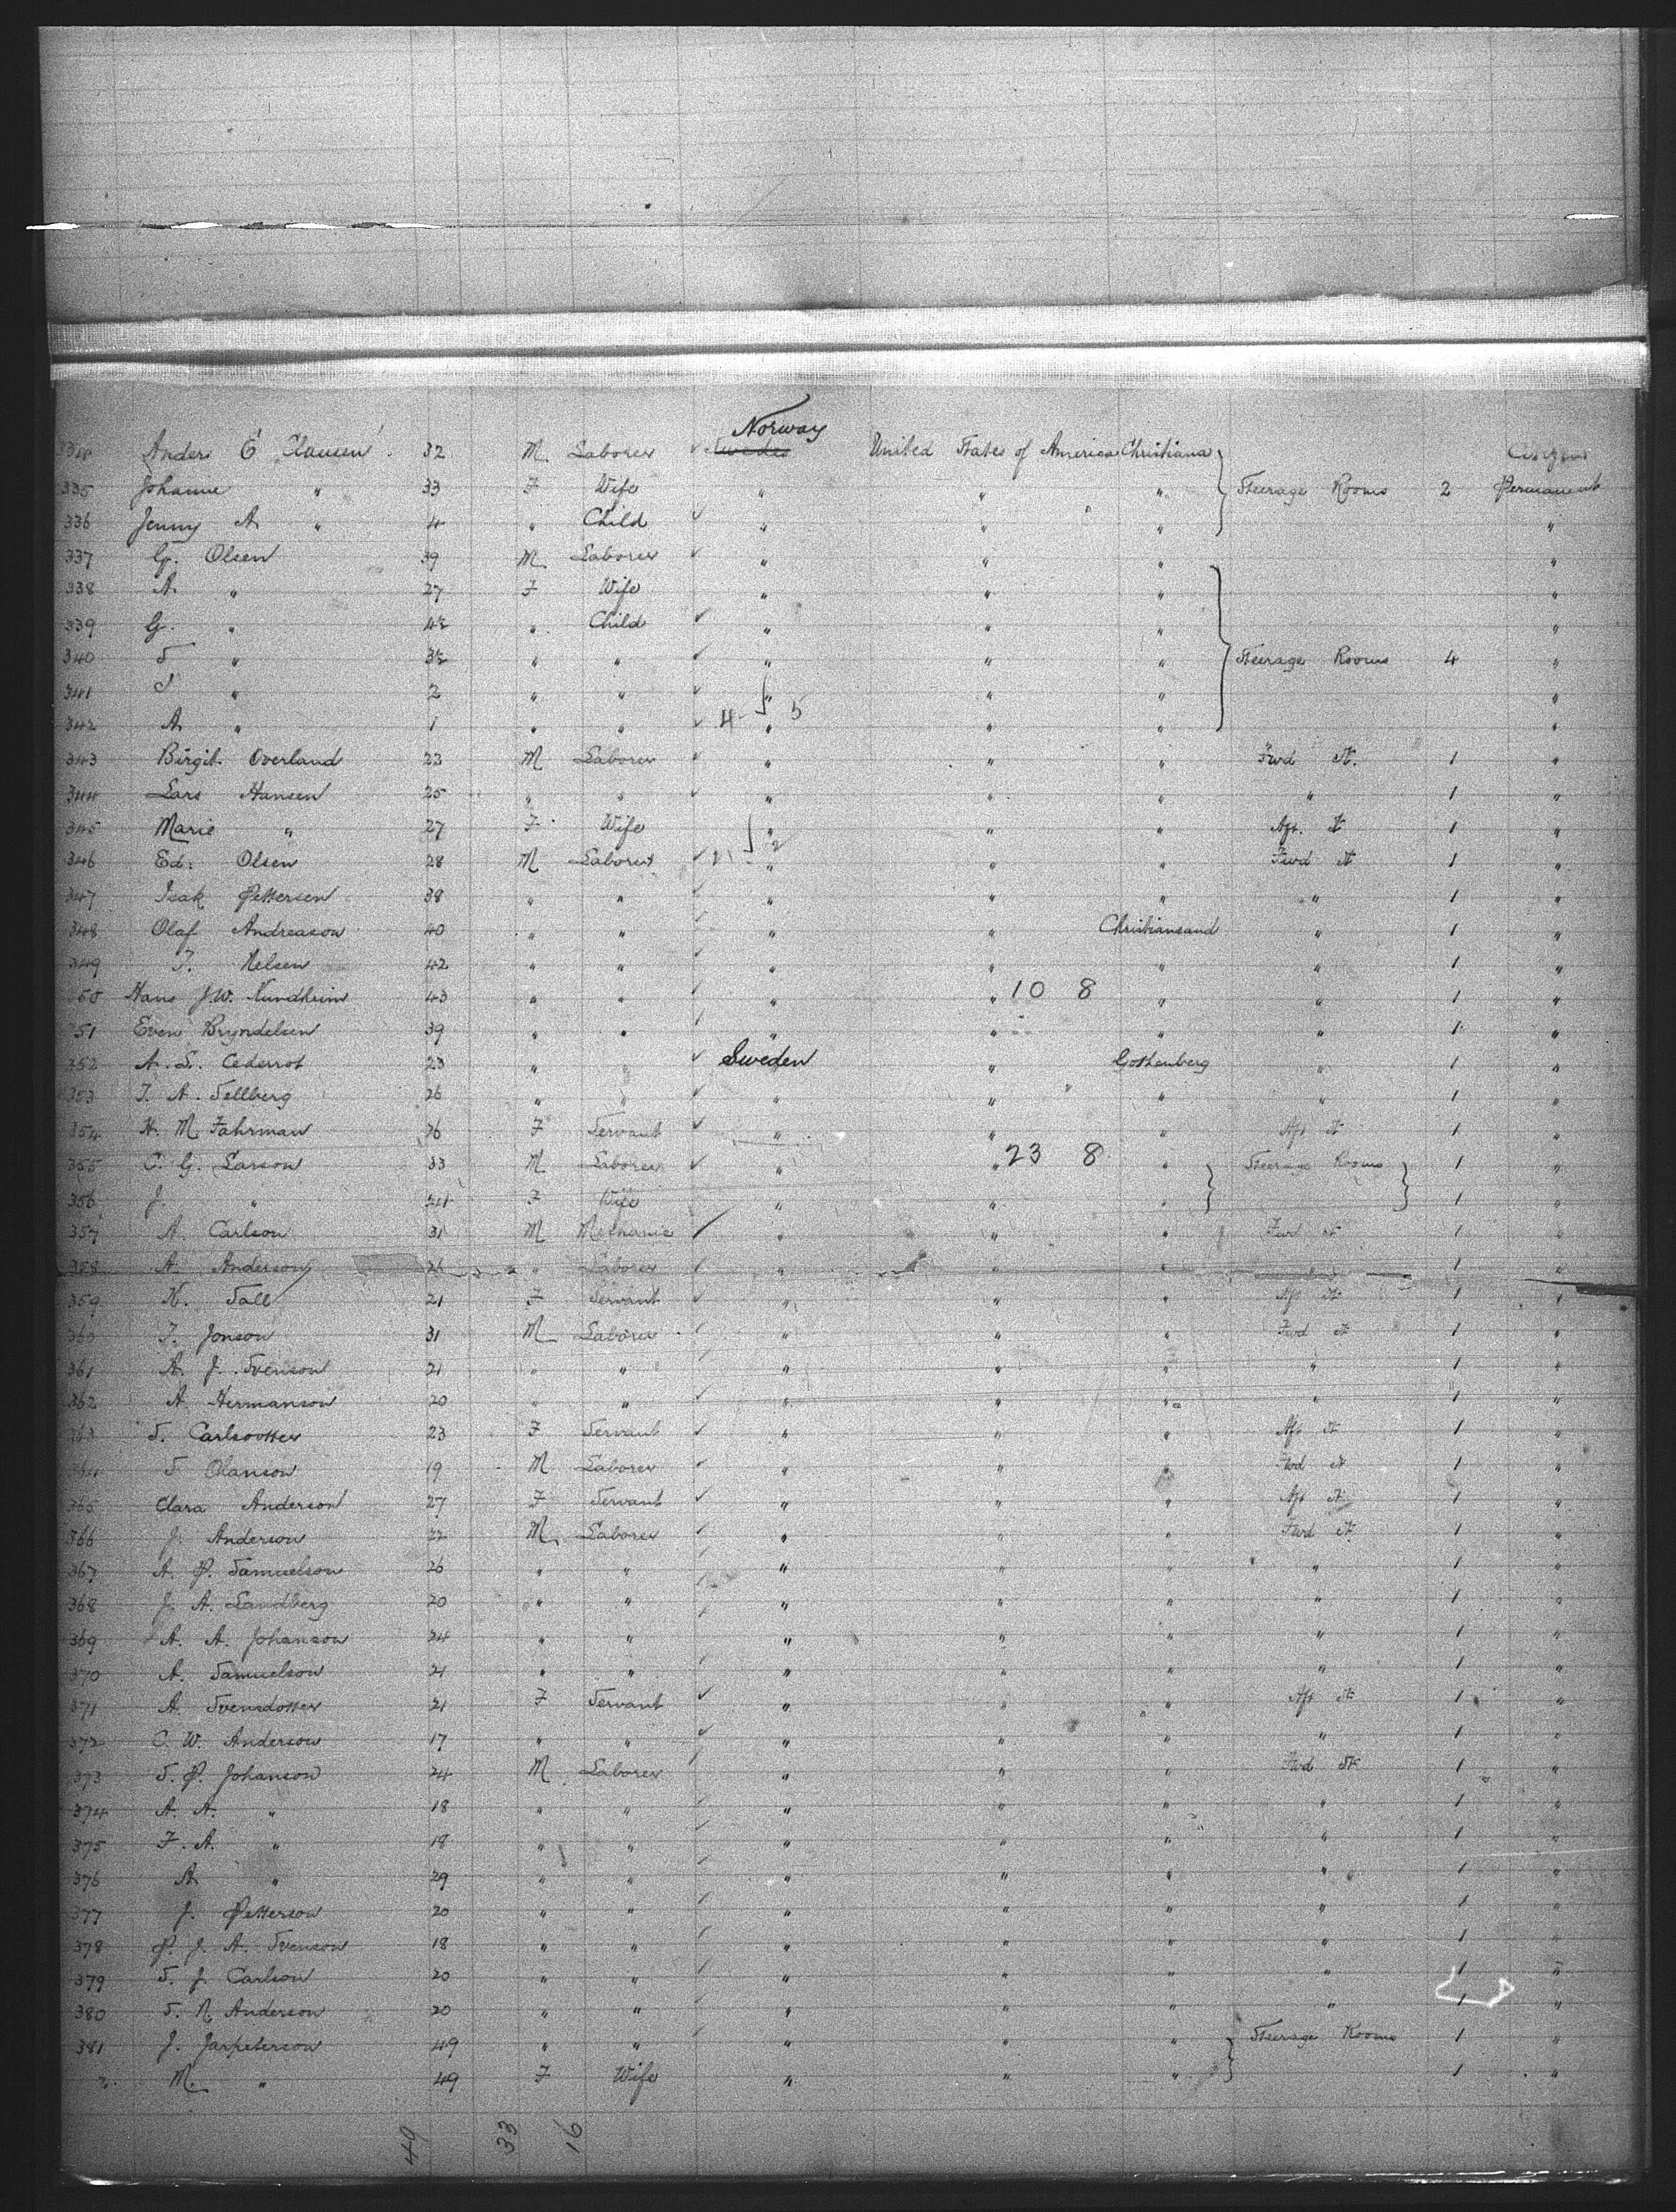 Norway
334 Anders E Clausen 32 M Laborer ✓ Sweden United States of America Christiana
335 Johanne " 33 F Wife " " " Steerage Rooms 2 Permanent
336 Jenny A " 4 " Child ✓ " " " "
337 G. Olsen 39 M Laborer ✓ " " " "
338 A. " 27 F Wife " " " "
339 G. " 4½ " Child ✓ " " " "
340 S " 3½ " " ✓ " " " Steerage Rooms 4 "
341 S " 2 " " ✓ " " " "
342 A " 1 " " ✓ 4 " 5 " " "
343 Birgit Overland 22 M Laborer ✓ " " " Fwd St. 1 "
344 Lars Hansen 25 " " ✓ " " " " 1 "
345 Marie " 27 F Wife " " " Aft. St 1 "
346 Ed: Olsen 28 M Laborer ✓ " 2 " " Fwd St 1 "
347 Isak Pettersen 38 " " ✓ " " " " 1 "
348 Olaf Andreason 40 " " " " Christiansand " 1 "
349 T. Nelsen 42 " " ✓ " " " " 1 "
350 Hans J.W. Nundheim 43 " " ✓ " " 10 8 " " 1 "
351 Even Bryndelsen 39 " " ✓ " " " " 1 "
352 A. L. Cederrot 23 " " ✓ Sweden " Gothenberg " 1 "
353 J. A. Sellberg 26 " " ✓ " " " " 1 "
354 H. M. Fahrman 26 F Servant ✓ " " " Aft St 1 "
355 C. G. Larson 33 M Laborer ✓ " " 23 8 " Steerage Rooms 1 "
356 J. " 24 F Wife " " " 1 "
357 A. Carlson 31 M Mechanic ✓ " " " Fwd St 1 "
358 A. Anderson 26 " Laborer ✓ " " " " 1 "
359 K. Sall 21 F Servant ✓ " " " Aft St 1 "
360 F. Jonson 31 M Laborer ✓ " " " Fwd St 1 "
361 A. J. Svenson 21 " " ✓ " " " " 1 "
362 A. Hermanson 20 " " ✓ " " " " 1 "
363 S. Carlsdotter 23 F Servant ✓ " " " Aft St 1 "
364 S. Olanson 19 M Laborer ✓ " " " Fwd St 1 "
365 Clara Anderson 27 F Servant ✓ " " " Aft St 1 "
366 J. Anderson 22 M Laborer ✓ " " " Fwd St 1 "
367 A. P. Samuelson 26 " " ✓ " " " " 1 "
368 J. A. Sandberg 20 " " ✓ " " " " 1 "
369 A. A. Johanson 24 " " ✓ " " " " 1 "
370 A. Samuelson 21 " " ✓ " " " " 1 "
371 A. Svensdotter 21 F Servant ✓ " " " Aft St 1 "
372 C. W. Anderson 17 " " ✓ " " " " 1 "
373 S. P. Johanson 24 M Laborer ✓ " " " Fwd St 1 "
374 A. A. " 18 " " ✓ " " " " 1 "
375 F. A. " 18 " " ✓ " " " " 1 "
376 A " 29 " " ✓ " " " " 1 "
377 J. Petterson 20 " " ✓ " " " " 1 "
378 P. J. A. Svenson 18 " " ✓ " " " " 1 "
379 S. J. Carlson 20 " " ✓ " " " " 1 "
380 S. N. Anderson 20 " " ✓ " " " " 1 "
381 J. Jarpeterson 49 " " ✓ " " " Steerage Rooms 1 "
2 M. " 49 F Wife " " " 1 "
49 33 16